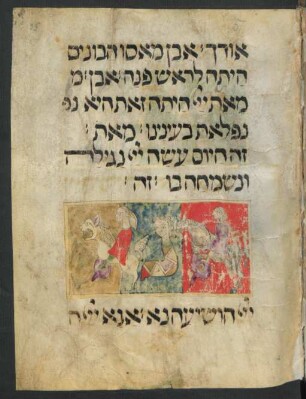 אודך אבן מאסו הבונים
היתה לראש פנה אבן מ
מאת ייי היתה זאת היא נפ
נפלאת בעינינו מאת
זה היום עשה ייי נגילה
ונשמחה בו זה
ייי הושיעה נא אנא ייי ה